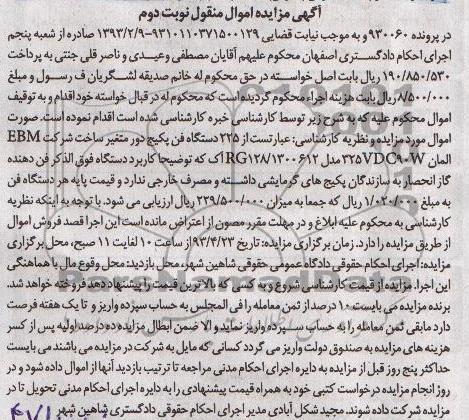 آگهی مزایده اموال منقول نوبت دوم
در پرونده ۹۳۰۰۶۰ و به موجب نیابت قضایی ۹۳۱۰۱۱۰۳۷۱۵۰۰۱۲۹-۱۳۹۳/۲/۹ صادره از شعبه پنجم
اجرای احکام دادگستری اصفهان محکوم علیهم آقایان مصطفی وعیدی و ناصر قلی جنتی به پرداخت
۱۹۰/۸۵۰/۵۳۰ ریال بابت اصل خواسته در حق محکوم له خانم صدیقه لشگریان ف رسولی و مبلغ
۸/۵۰۰/۰۰۰ ریال بابت هزینه اجراء محکوم گردیده است که محکوم له در قبال خواسته خود اقدام و به توقیف
اموال محکوم علیه که به شرح زیر توسط کارشناسی خبره کارشناسی شده است اقدام نموده است. صورت
اموال مورد مزایده و نظریه کارشناسی: عبارتست از ۲۲۵ دستگاه فن پکیج دور متغیر ساخت شرکت EBM
المان ۳۲۵VDC۹۰W مدل RG۱۲۸/۱۳۰۰۶۱۲ آک که توضیحا کاربرد دستگاه فوق الذکر فن دهنده
گاز انحصار به سازندگان پکیج های گرمایشی داشته و مصرف خارجی ندارد و قیمت پایه هر دستگاه فن
به مبلغ ۱/۰۲۰/۰۰۰ ریال که جمعا به میزان ۲۲۹/۵۰۰/۰۰۰ ریال ارزیابی می شود. با توجه به اینکه نظریه
کارشناسی به محکوم علیه ابلاغ و در مهلت مقرر مصون از اعتراض مانده است این اجرا قصد فروش اموال
از طریق مزایده را دارد. زمان برگزاری مزایده: تاریخ ۹۳/۴/۲۳ از ساعت ۱۰ لغایت ۱۱ صبح، محل برگزاری
مزایده: اجرای احکام حقوقی دادگاه عمومی حقوقی شاهین شهر، محل بازدید: محل وقوع مال با هماهنگی
این اجرا. مزایده از قیمت کارشناسی شروع و به کسی که بالاترین قیمت را پیشنهاد دهد فروخته خواهد شد.
برنده مزایده می بایست ۱۰ درصد از ثمن معامله را فی المجلس به حساب سپرده واریز و تا یک هفته فرصت
دارد مابقی ثمن معامله را به حساب سپرده واریز نماید و الا ضمن ابطال مزایده ده درصد اولیه پس از کسر
هزینه های مزایده به صندوق دولت واریز می گردد کسانی که مایل به شرکت در مزایده می باشند می بایست
حداکثر پنج روز قبل از مزایده به دایره اجرای احکام مدنی مراجعه تا ترتیب بازدید آنها از اموال داده شود و در
روز انجام مزایده درخواست کتبی خود به همراه قیمت پیشنهادی را به دایره اجرای احکام مدنی تحویل تا در
مزایده شرکت داده شوند. مجید شکل آبادی مدیر اجرای احکام حقوقی دادگستری شاهین شهر